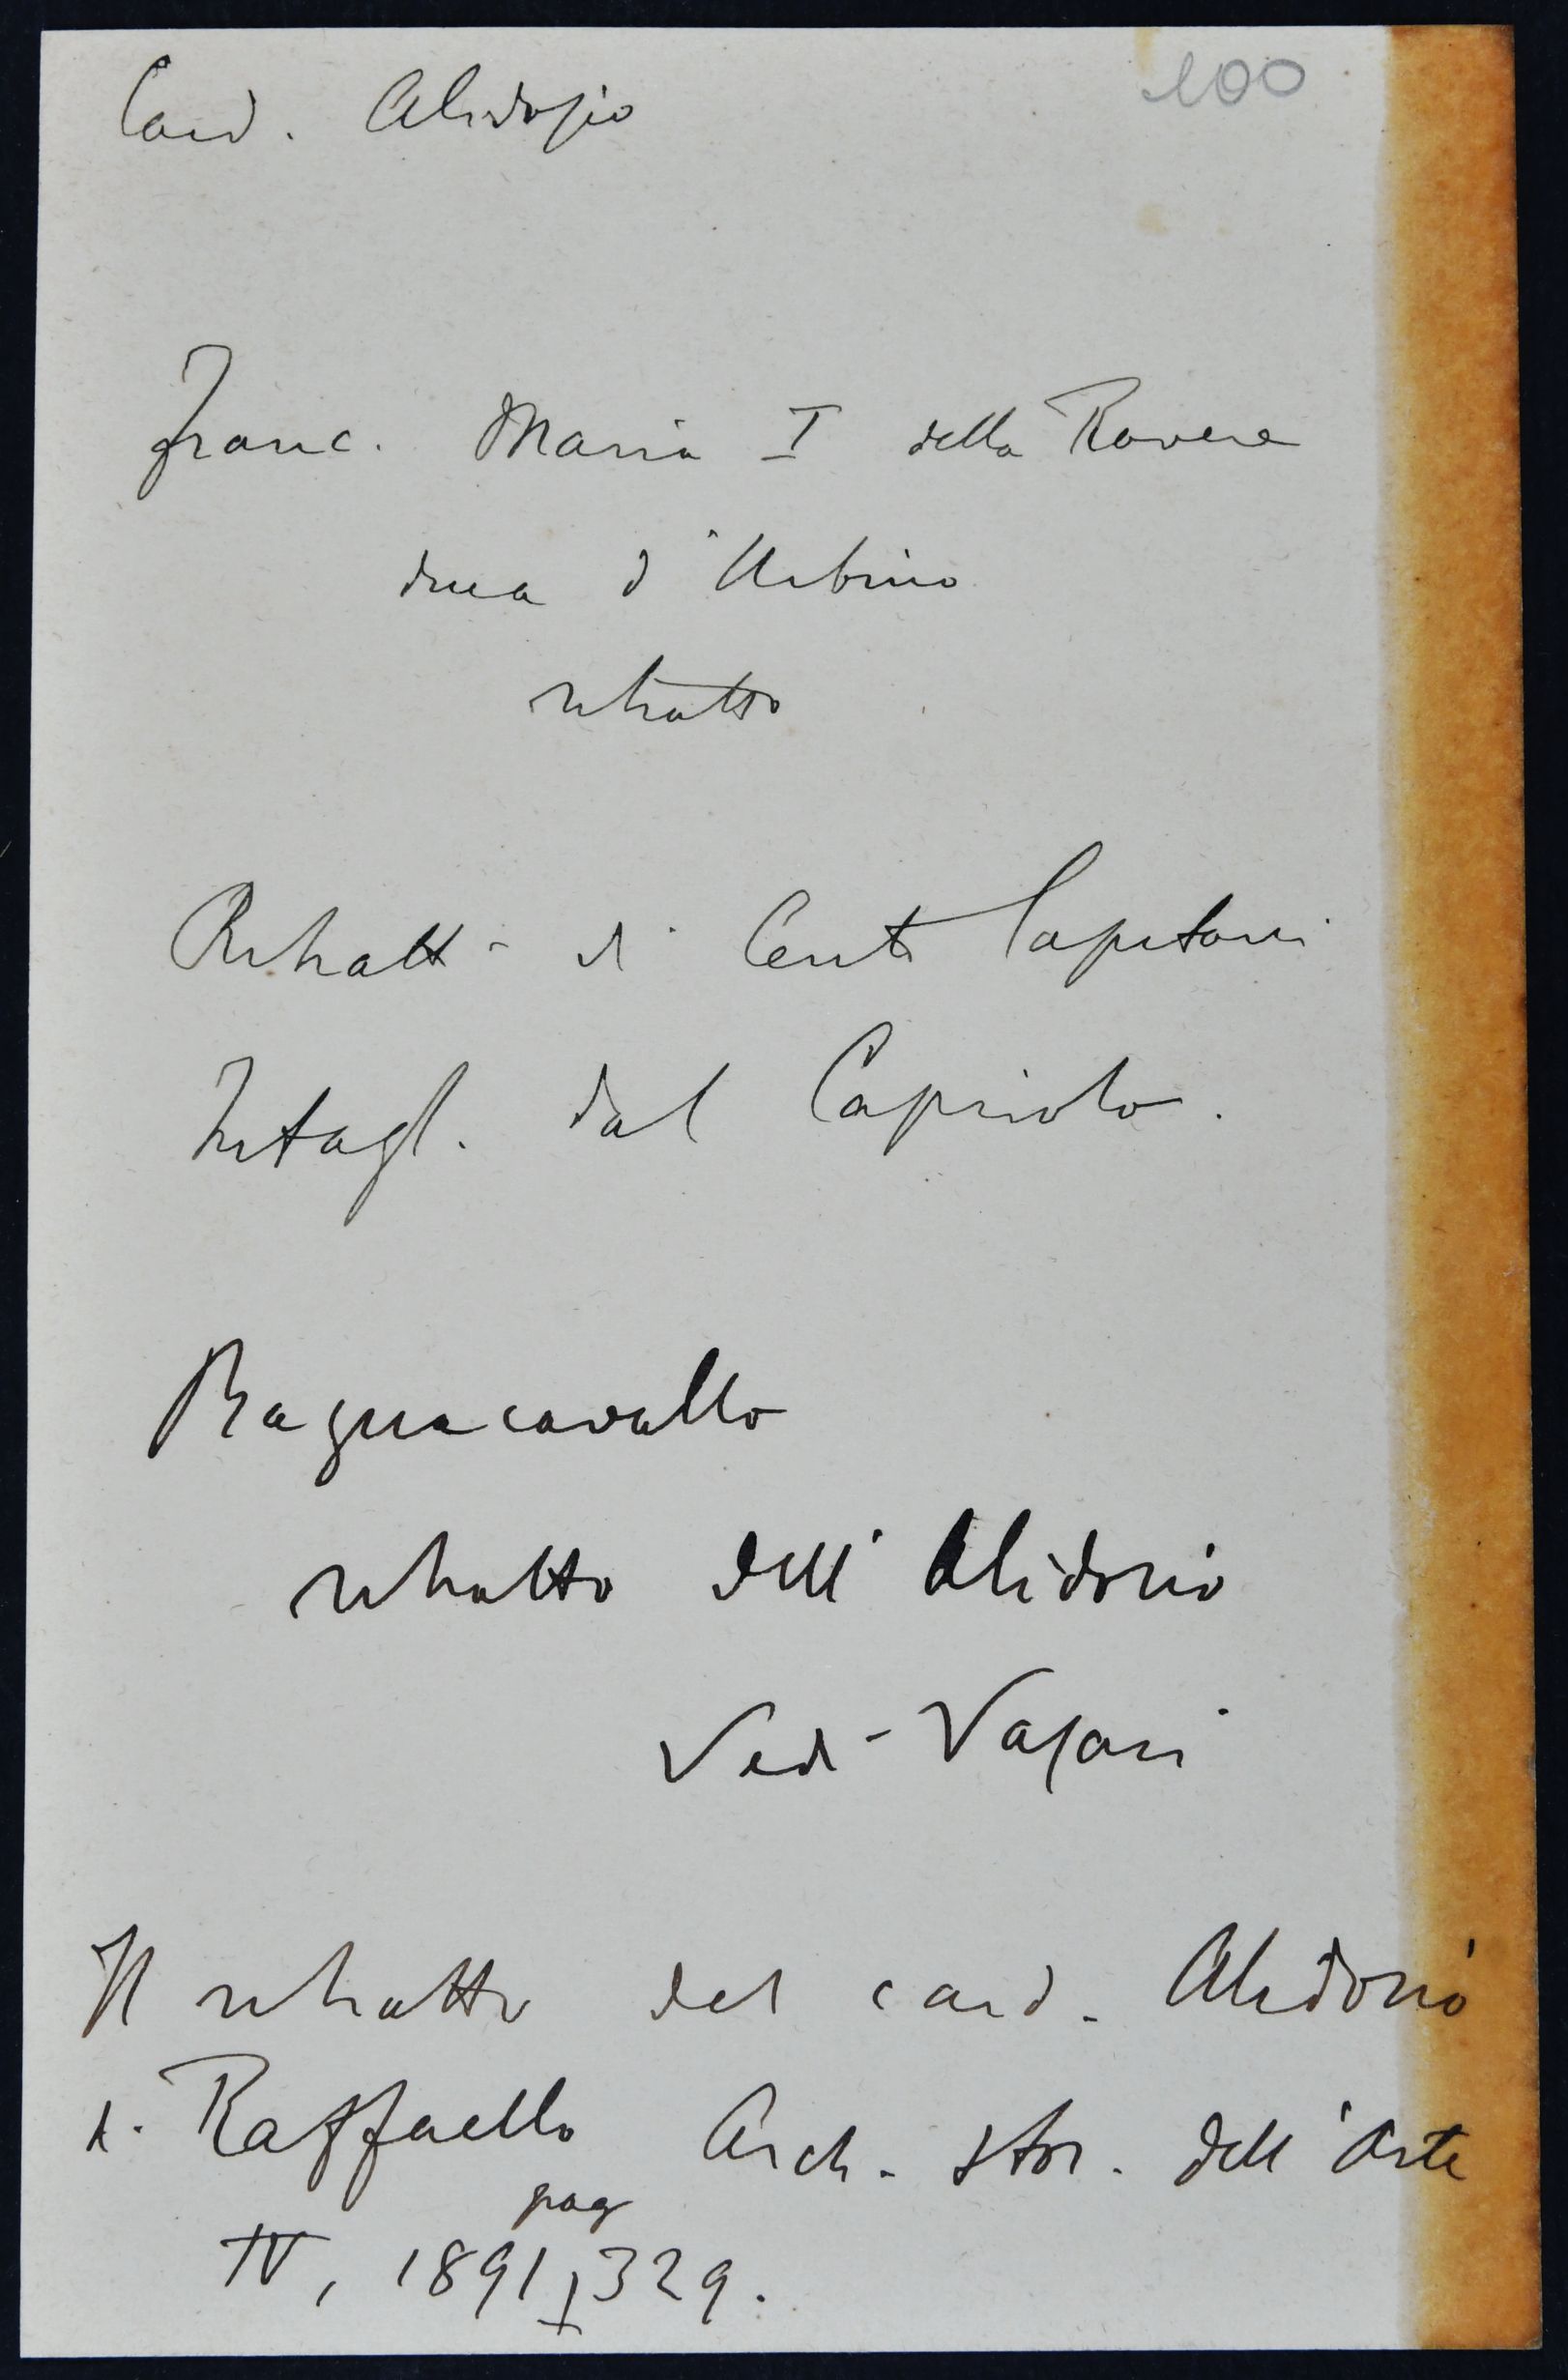 100
Card. Alidosio
Franc. Maria I della Rovere
duca d'Urbino
ritratto
Ritratti di Cento Capitani
Intagl. dal Capriolo.
Bagnacavallo
ritratto dell'Alidosio
Vedi Vasari
Il ritratto del card. Alidosio
di Raffaello Arch. stor. dell'Arte
pag
IV, 1891, 329.